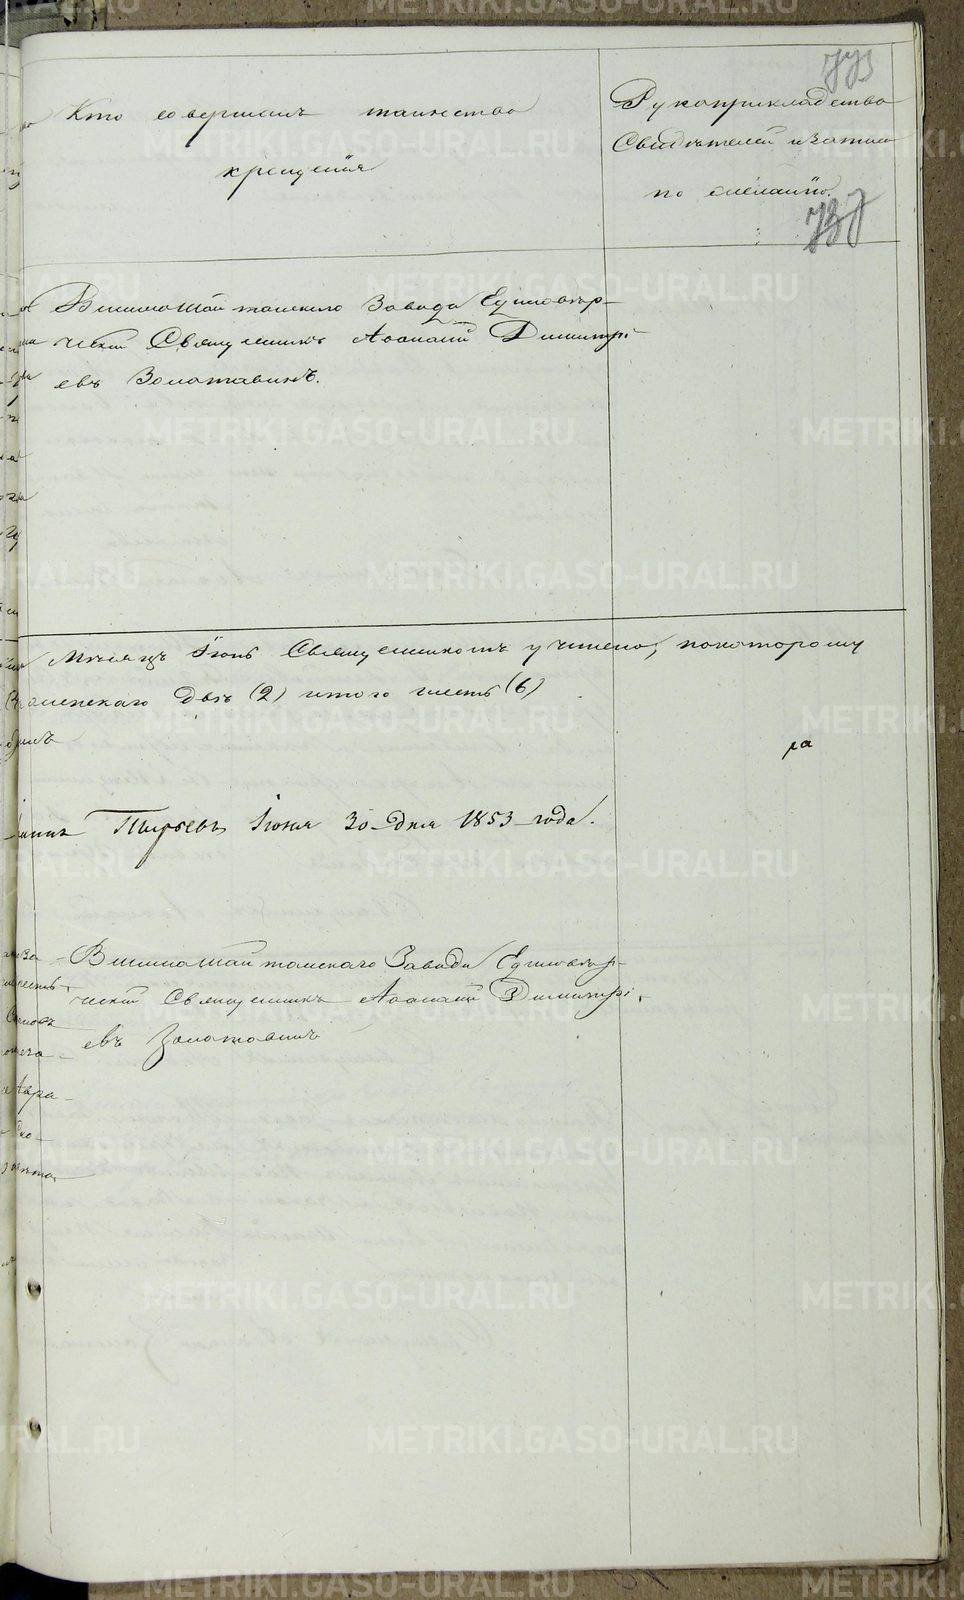 773
Кто совершалъ таинство
крещенія
Рукоприкладство
Свидѣтелей записи
по желанію.
737
Висимошайтанскаго Завода Единовѣр-
ческій Священникъ Аѳанасій Димитрі-
евъ Золотавинъ.
Мѣсяцъ Іюнь Священникомъ учинено, покоторому
женскаго двѣ (2) итого шесть (6)
ра
Іюня 30 дня 1853 года.
Висимошайтанскаго Завода Единовѣр-
ческій Священникъ Аѳанасій Димитрі-
евъ Золотавинъ
METRIKI.GASO-URAL.RU